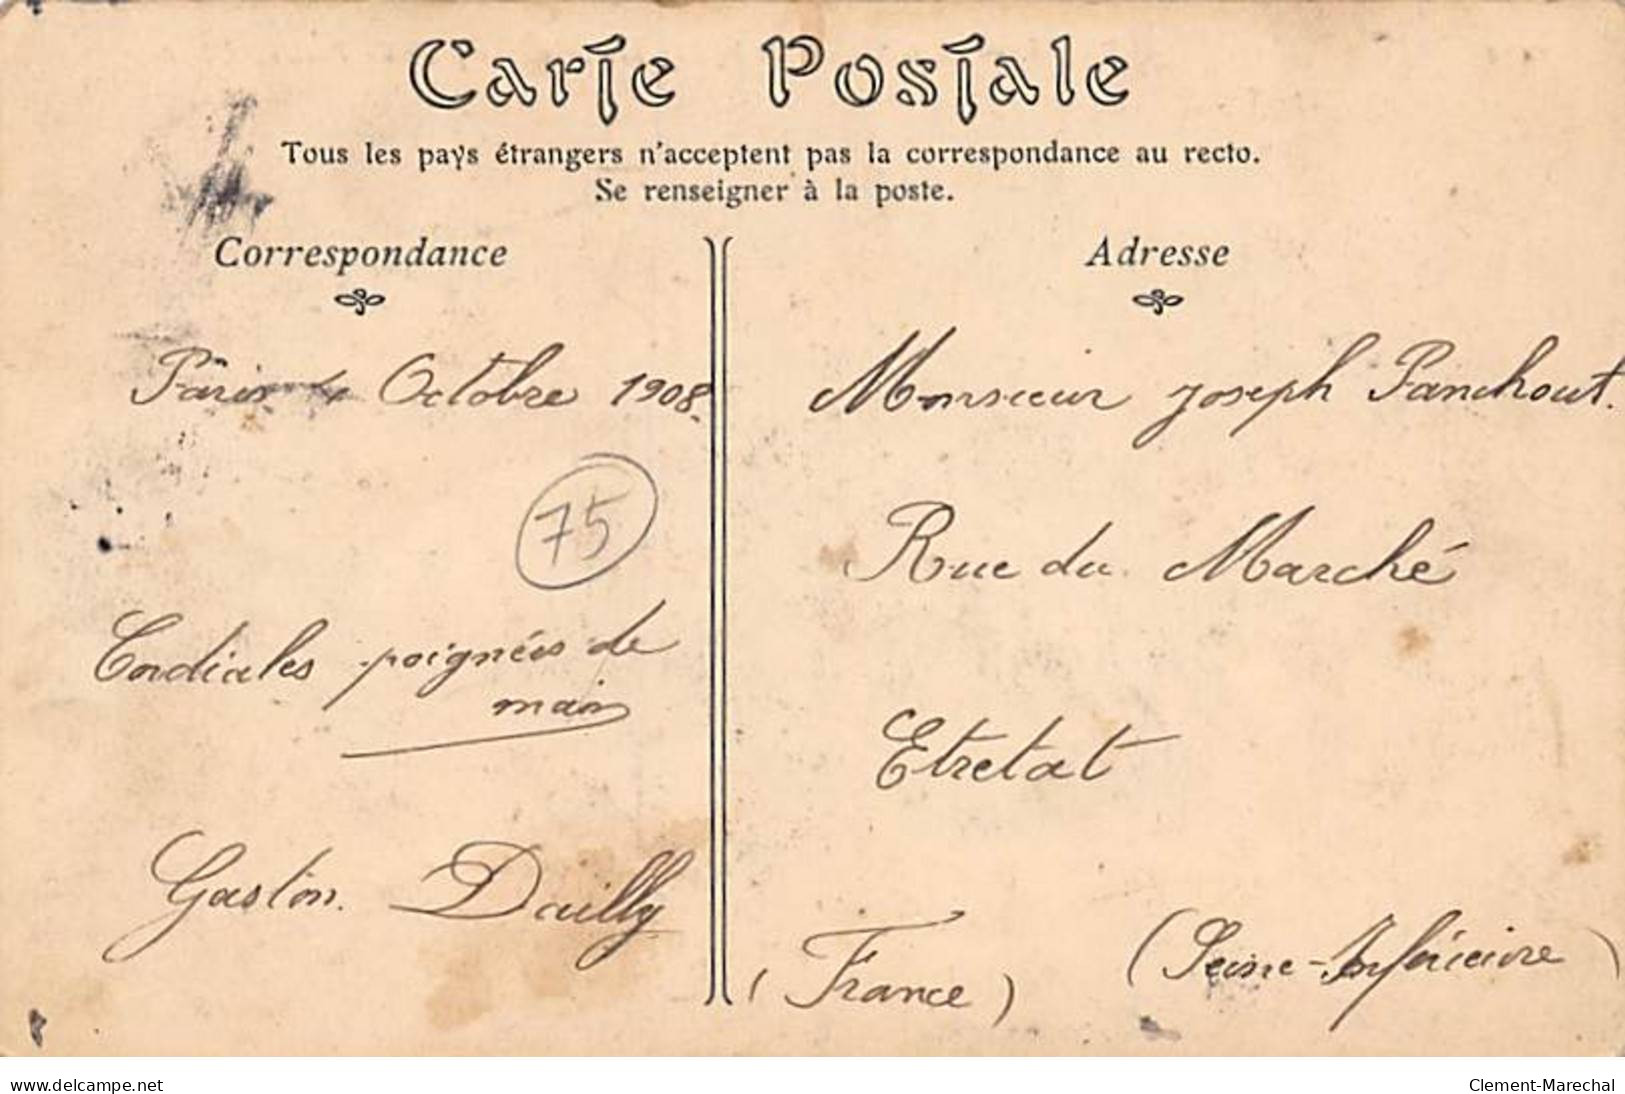 Carte Postale
Tous les pays étrangers n'acceptent pas la correspondance au recto.
Se renseigner à la poste.
Correspondance
Paris le Octobre 1908.
75
Cordiales poignées de
main
Gaston Dailly
Adresse
Monsieur Joseph Panchout.
Rue du Marché
Etretat
(Seine-Inférieure)
(France)
www.delcampe.net
Clement-Marechal